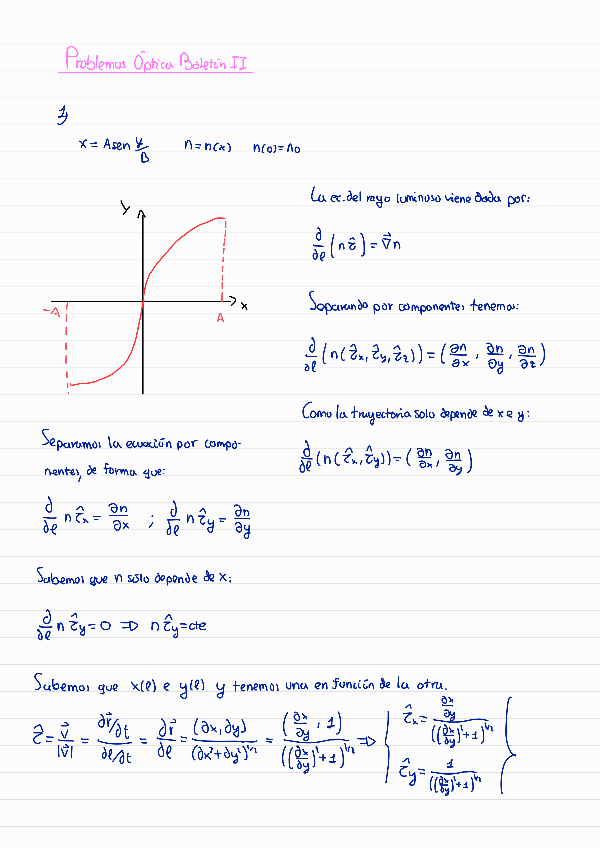 Problemas Óptica Boletín II
1)
x = A sen y/B n = n(x) n(0) = n0
y
x
-A
A
La ec. del rayo luminoso viene dada por:
∂/∂ℓ (n τ̂) = ∇⃗n
Separando por componentes tenemos:
∂/∂ℓ (n(τ̂x, τ̂y, τ̂z)) = (∂n/∂x, ∂n/∂y, ∂n/∂z)
Como la trayectoria solo depende de x e y:
∂/∂ℓ (n(τ̂x, τ̂y)) = (∂n/∂x, ∂n/∂y)
Separamos la ecuación por compo-
nentes, de forma que:
∂/∂ℓ n τ̂x = ∂n/∂x ; ∂/∂ℓ n τ̂y = ∂n/∂y
Sabemos que n sólo depende de x:
∂/∂ℓ n τ̂y = 0 ⇒ n τ̂y = cte
Sabemos que x(ℓ) e y(ℓ) y tenemos una en función de la otra.
τ̂ = v⃗/|v⃗| = (∂r⃗/∂t)/(∂ℓ/∂t) = ∂r⃗/∂ℓ = (∂x, ∂y)/(∂x² + ∂y²)^1/2 = (∂x/∂y, 1)/((∂x/∂y)² + 1)^1/2 ⇒ { τ̂x = (∂x/∂y)/((∂x/∂y)² + 1)^1/2
τ̂y = 1/((∂x/∂y)² + 1)^1/2 {